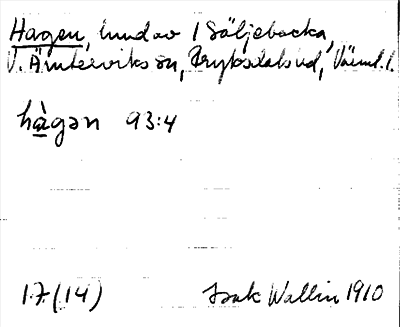 Hagen, lundav 1 Säljebacka,
V. Ämterviks sn, Fryksdals hd, Värml. l.
hàgən 93:4
17(14) Isak Wallin 1910